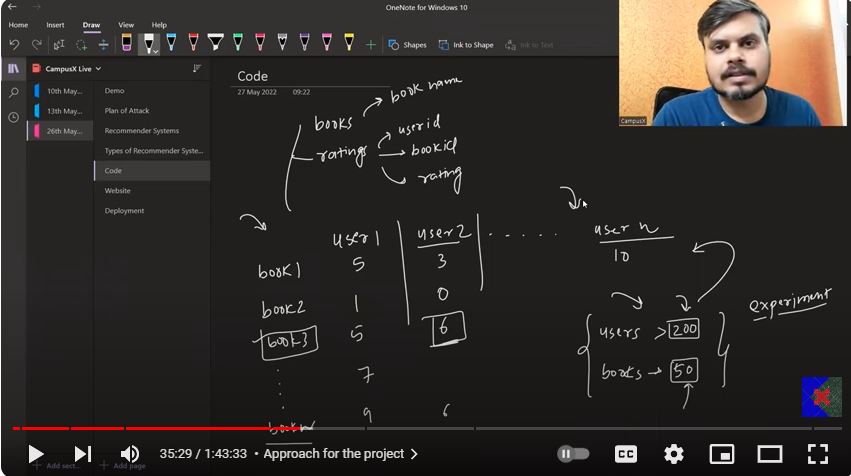 OneNote for Windows 10
Home Insert Draw View Help
Shapes Ink to Shape Ink to Text
CampusX Live
10th May...
13th May...
26th May...
Demo
Plan of Attack
Recommender Systems
Types of Recommender Syste...
Code
Website
Deployment
Code
27 May 2022 09:22
CampusX
books → book name
ratings → userid
→ bookid
→ rating
user1 user2 ...... user n
book1 5 3 10
book2 1 0
book3 5 6
7
book n 9 6
users > 200
books → 50
experiment
35:29 / 1:43:33 • Approach for the project >
CC
HD
Add sect...
Add page